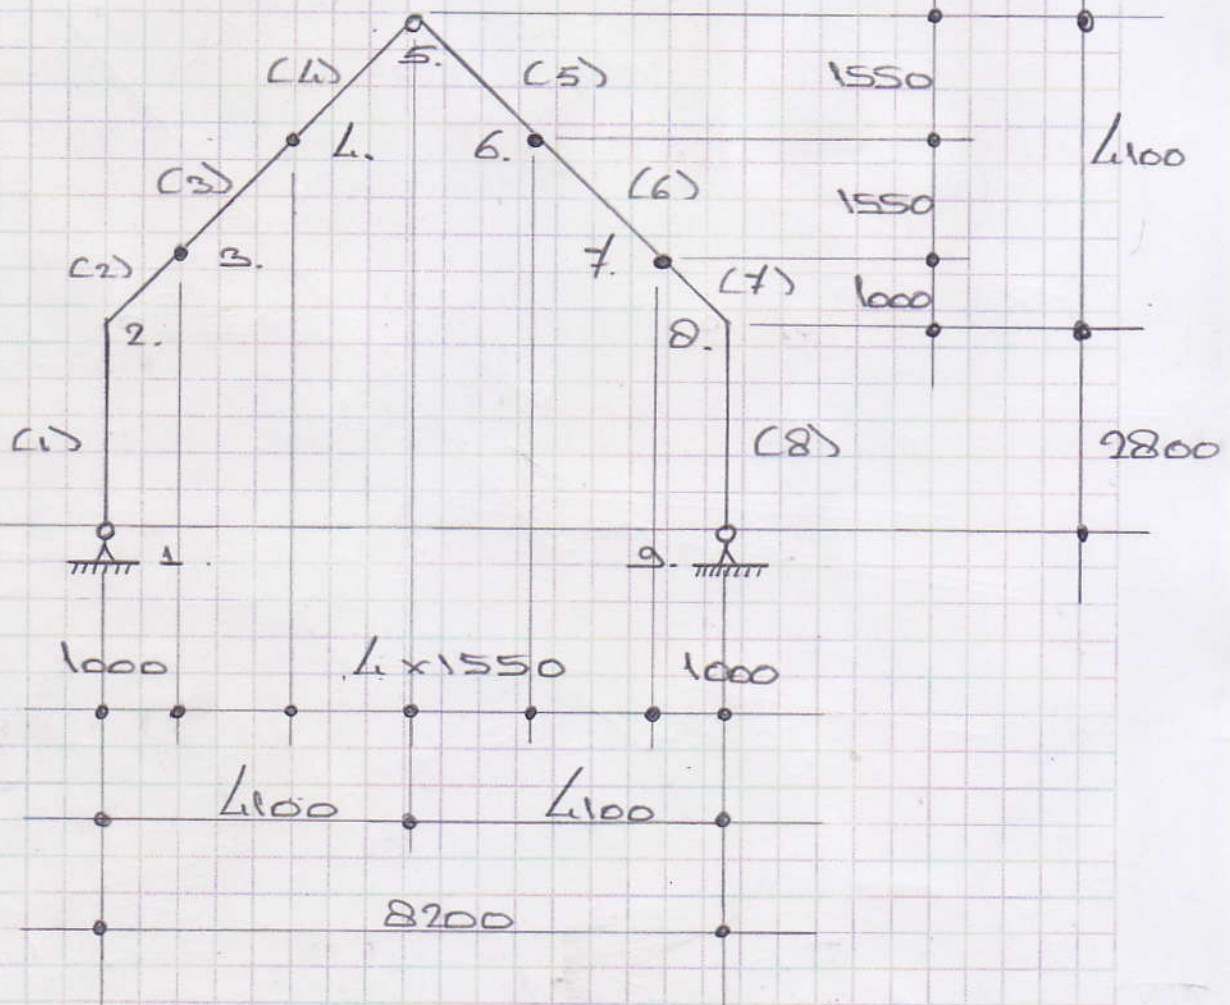 5.
(4)
(5)
1550
4.
6.
4100
(3)
(6)
1550
3.
7.
(2)
(7)
1000
2.
8.
(1)
(8)
2800
1.
9.
1000
4x1550
1000
4100
4100
8200